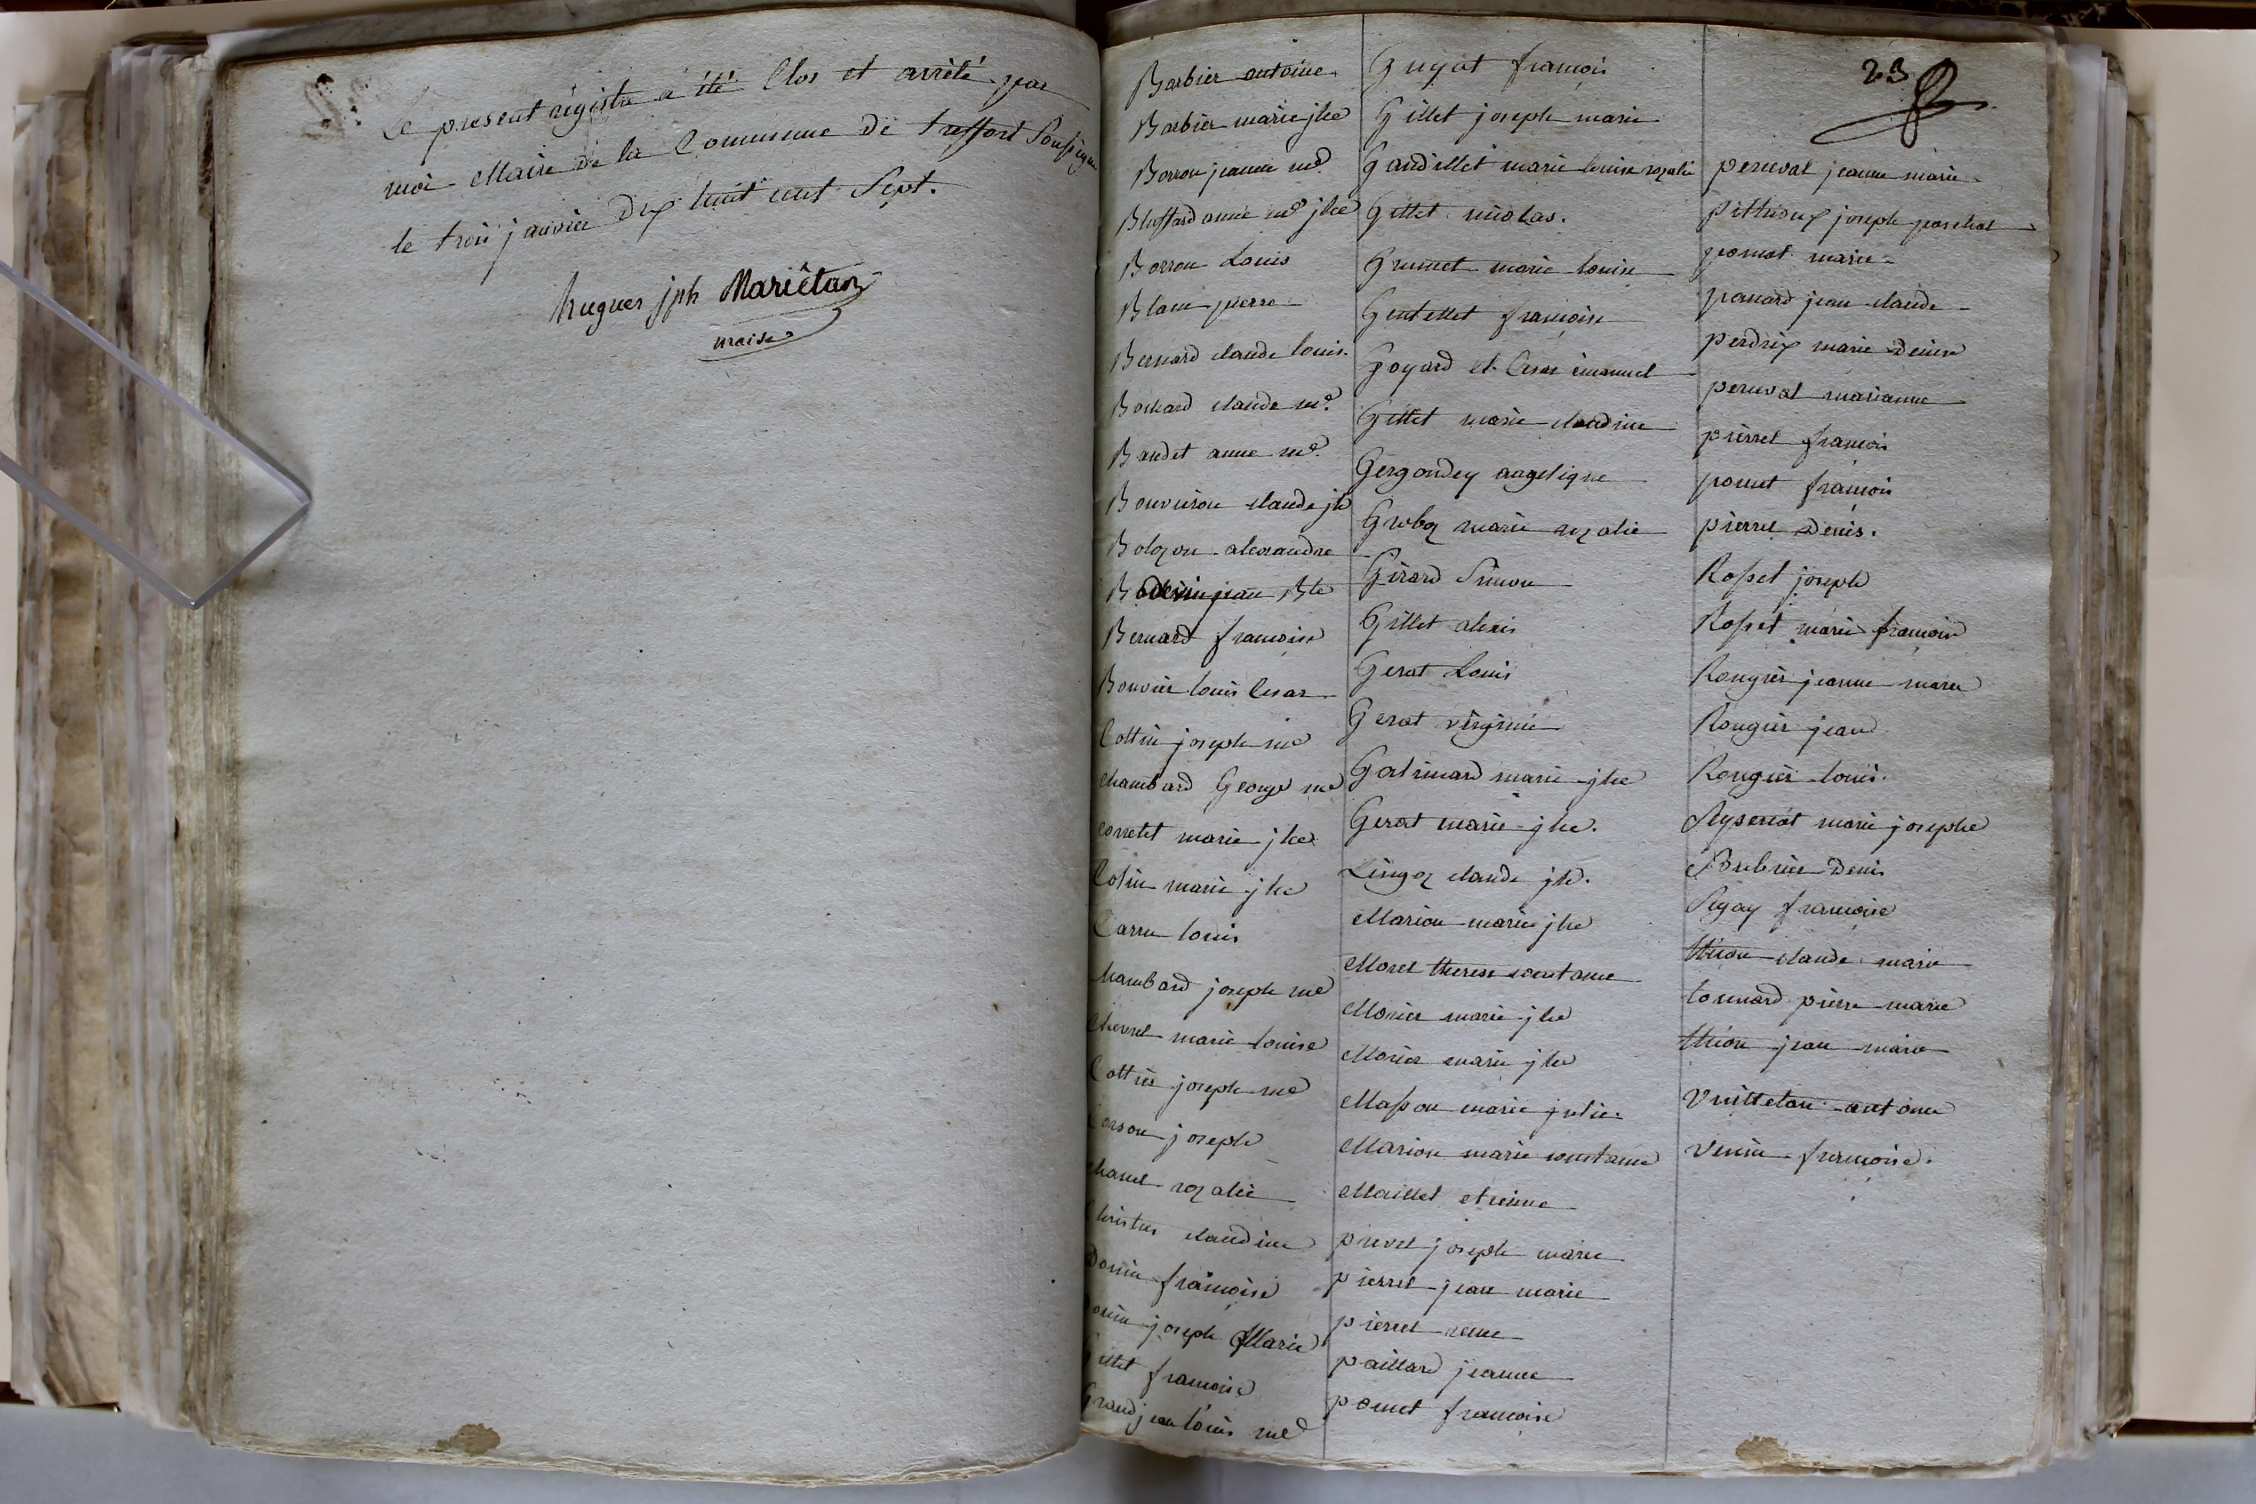 Le present régistre a été Clos et arrêté par
moi Maire de la Commune de treffort Soussigné
le trois janvier dix huit cent Sept.
hugues jph Mariétan
maire
23
Barbier antoine
Barbier marie jhe
Borron jeanne me
Bluffard anne me jhe
Borron Louis
Blanc pierre
Bernard claude louis.
Bochard claude me.
Baudet anne me.
Bouveiron claude jh
Bolozon alexandre
jean Bte
Bernard francoise
Bouvier louis Cesar
Cottin joseph me
Chambard George me
Corretet marie jhe
Colin marie jhe
Carru louis
Chambard joseph me
Chevrel marie louise
Cottier joseph me
Corson joseph
Chanel rozalie
claudine
Donin francoise
Donin joseph Marie
Gillet francoise
Grandjean louis me
Guyot francois
Gillet joseph marie
Gandillet marie louise rozalie
Gillet nicolas.
Grumet marie louise
Gentellet francoise
Goyard et Cesar emanuel
Gillet marie claudine
Gergondey angelique
Groboz marie rozalie
Girard Simon
Gillet alexis
Gerat Louis
Gerat virginie
Gatimard marie jhe
Gerat marie jhe.
Lingoz claude jh.
Marion marie jhe
Morel therese constance
Morier marie jhe
Morier marie jhe
Masson marie julie.
Marion marie constance
Maillet etienne
privet joseph marie
pierrel jean marie
pierrel reine
paillard jeanne
pomet francoise
perceval jeanne marie
pittrioux joseph paschal
pomat marie
panard jean claude
perdrix marie denise
perceval marianne
pierrel francois
pomet francois
pierrel Denis.
Rosset joseph
Rosset marie francoise
Rougier jeanne marie
Rougier jean
Rougier louis.
Ryserrat marie josephe
Brebrier Denis
Sigay francoise
thion claude marie
tonnard pierre marie
thion jean marie
Vuilleton antoine
Venin francoise.